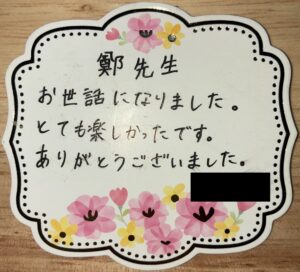 鄭先生
お世話になりました。
とても楽しかったです。
ありがとうございました。